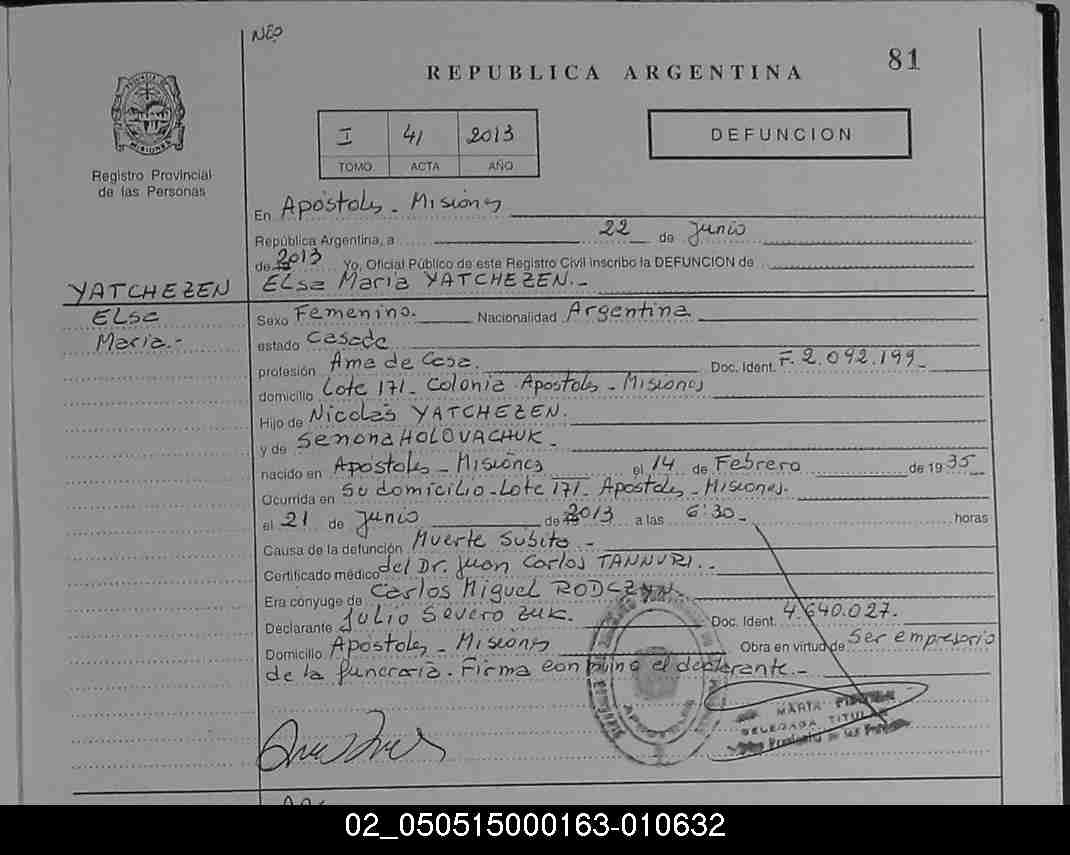 NEO
81
REPUBLICA ARGENTINA
MISIONES
Registro Provincial
de las Personas
I 41 2013
TOMO ACTA AÑO
DEFUNCION
En Apóstoles - Misiones
República Argentina, a 22 de Junio
de 2013 Yo, Oficial Público de este Registro Civil inscribo la DEFUNCION de
YATCHEZEN
ELsa
Maria.-
ELsa Maria YATCHEZEN.-
Sexo Femenino. Nacionalidad Argentina
estado Casada
profesión Ama de Casa. Doc. Ident. F. 2.092.199-
domicilio Lote 171- Colonia Apostoles - Misiones
Hijo de Nicolás YATCHEZEN.
y de Senona HOLOVACHUK-
nacido en Apostoles - Misiones el 14 de Febrero de 1935
Ocurrida en Su domicilio-Lote 171- Apostoles - Misiones.
el 21 de Junio de 2013 a las 6:30- horas
Causa de la defunción Muerte Súbita -
Certificado médico del Dr. Juan Carlos TANNURI..
Era cónyuge de Carlos Miguel
Declarante JULIO Severo ZUK. Doc. Ident. 4.640.027.
Domicilio Apóstoles - Misiones Obra en virtud de Ser empresario
de la funeraria. Firma conmigo el declarante.-
MARTA
DELEGADA TITULAR
APOSTOLES
02_050515000163-010632